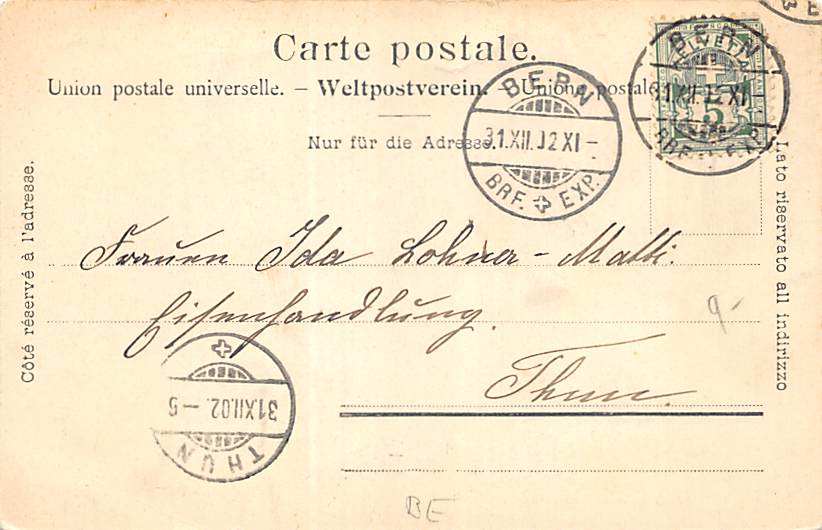 Carte postale.
Union postale universelle. – Weltpostverein. – Unione postale
Nur für die Adresse.
Côté réservé à l'adresse.
Lato riservato all indirizzo
HELVETIA
5
BERN
31.XII.02 XI –
BRF. EXP.
BERN
31.XII.02 XI –
BRF. EXP.
Frauen Ida Lohner-Matti.
Eisenhandlung.
Thun.
9.-
THUN
31.XII.02. – 5
BE